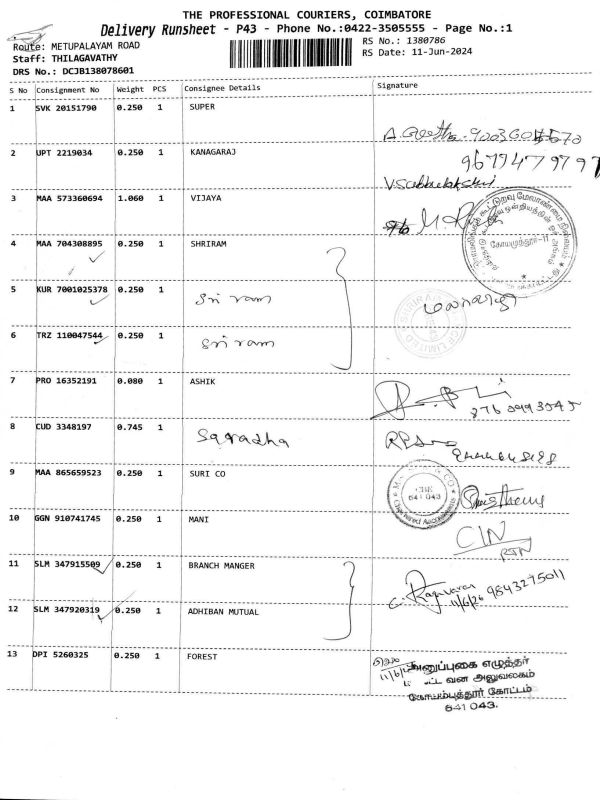 THE PROFESSIONAL COURIERS, COIMBATORE
Delivery Runsheet - P43 - Phone No.:0422-3505555 - Page No.:1
Route: METUPALAYAM ROAD
RS No.: 1380786
Staff: THILAGAVATHY
RS Date: 11-Jun-2024
DRS No.: DCJB138078601
S No Consignment No Weight PCS Consignee Details Signature
1 SVK 20151790 0.250 1 SUPER
2 UPT 2219034 0.250 1 KANAGARAJ
3 MAA 573360694 1.060 1 VIJAYA
4 MAA 704308895 0.250 1 SHRIRAM
5 KUR 7001025378 0.250 1 Sri ram
6 TRZ 110047544 0.250 1 Sri ram
7 PRO 16352191 0.080 1 ASHIK
8 CUD 3348197 0.745 1 Saradha
9 MAA 865659523 0.250 1 SURI CO
CBE
641 043
Chartered Accountants
10 GGN 910741745 0.250 1 MANI
11 SLM 347915509 0.250 1 BRANCH MANGER
9843275011
12 SLM 347920319 0.250 1 ADHIBAN MUTUAL
13 DPI 5260325 0.250 1 FOREST
அனுப்புகை எழுத்தர்
வன அலுவலகம்
கோயம்புத்தூர் கோட்டம்
641 043.